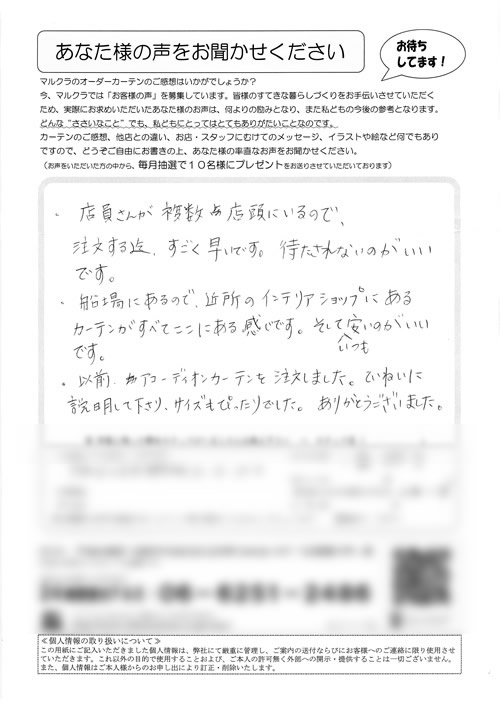 あなた様の声をお聞かせください
お待ち
してます！
マルクラのオーダーカーテンのご感想はいかがでしょうか？
今、マルクラでは「お客様の声」を募集しています。皆様のすてきな暮らしづくりをお手伝いさせていただく
ため、実際にお求めいただいたあなた様のお声は、何よりの励みとなり、また私どもの今後の参考となります。
どんな“ささいなこと”でも、私どもにとってはとてもありがたいことなのです。
カーテンのご感想、他店との違い、お店・スタッフにむけてのメッセージ、イラストや絵など何でもあり
ますので、どうぞご自由にお書きの上、あなた様の率直なお声をお聞かせください。
（お声をいただいた方の中から、毎月抽選で１０名様にプレゼントをお送りさせていただいております）
・店員さんが複数店頭にいるので、
注文する迄、すごく早いです。待たされないのがいい
です。
・船場にあるので、近所のインテリアショップにある
カーテンがすべてここにある感じです。そして安いのがいい
いつも
です。
・以前、アコーディオンカーテンを注文しました。ていねいに
説明して下さり、サイズもぴったりでした。ありがとうございました。
06-6251-2486
≪個人情報の取り扱いについて≫
この用紙にご記入いただきました個人情報は、弊社にて厳重に管理し、ご案内の送付ならびにお客様へのご連絡に限り使用させ
ていただきます。これ以外の目的で使用することおよび、ご本人の許可無く外部への開示・提供することは一切ございません。
また、個人情報はご本人様からのお申し出により訂正・削除いたします。